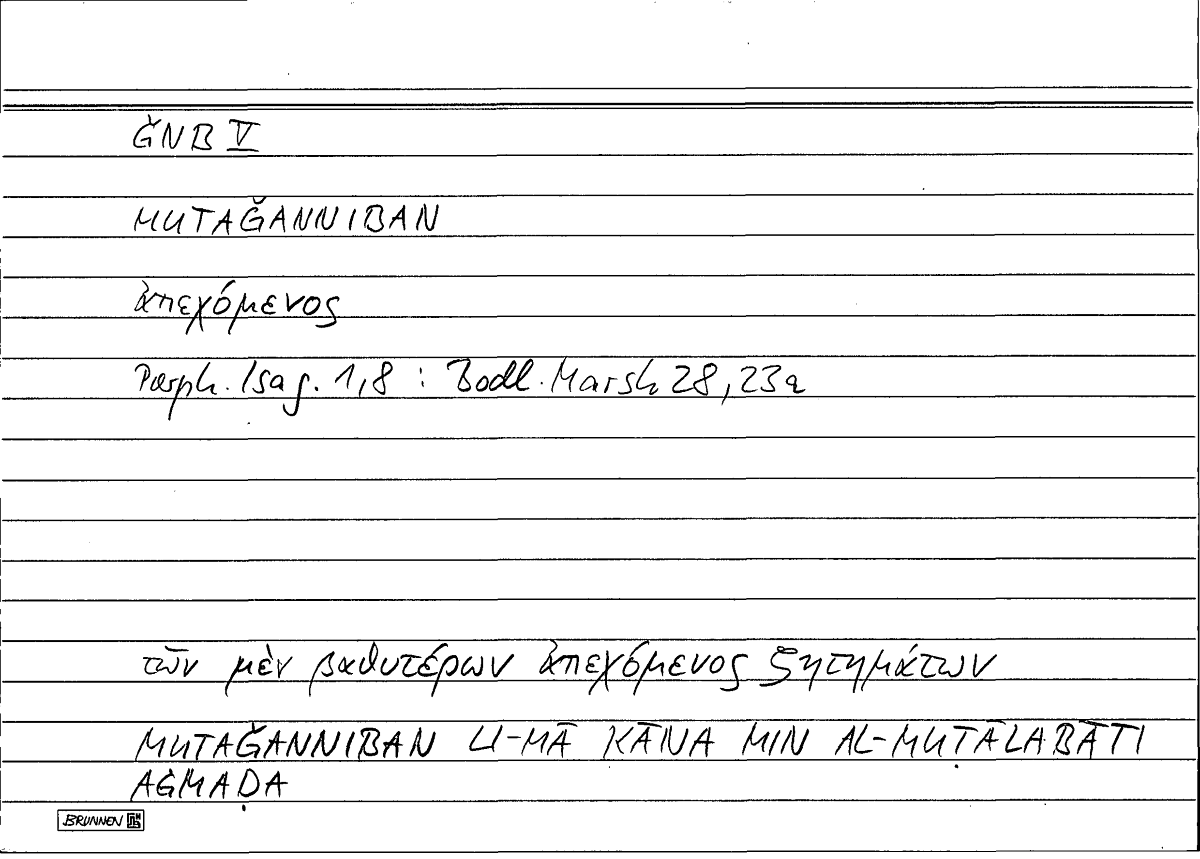 ǦNB V
MUTAǦANNIBAN
ἀπεχόμενος
Porph. Isag. 1,8 : Bodl. Marsh 28, 23a
τῶν μὲν βαθυτέρων ἀπεχόμενος ζητημάτων
MUTAǦANNIBAN LI-MĀ KĀNA MIN AL-MUṬĀLABĀTI
AĠMAḌA
BRUNNEN